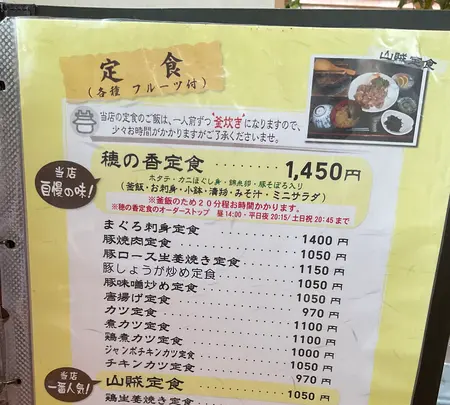 定食
(各種 フルーツ付)
山賊定食
当店の定食のご飯は、一人前ずつ"釜炊き"になりますので、
少々お時間がかかりますがご了承くださいませ。
当店
自慢の味!
穂の香定食 ・・・・・ 1,450円
ホタテ・カニほぐし身・錦糸卵・豚そぼろ入り
(釜飯・お刺身・小鉢・漬物・みそ汁・ミニサラダ)
※釜飯のため20分程お時間かかります。
※穂の香定食のオーダーストップ 昼14:00・平日夜20:15/土日祝20:45まで
まぐろ刺身定食 1400円
豚焼肉定食 1050円
豚ロース生姜焼き定食 1150円
豚しょうが炒め定食 1050円
豚味噌炒め定食 1050円
唐揚げ定食 970円
カツ定食 1100円
煮カツ定食 1100円
鶏煮カツ定食 1000円
ジャンボチキンカツ定食 1050円
チキンカツ定食 970円
当店
一番人気!
山賊定食 1050円
鶏生姜焼き定食